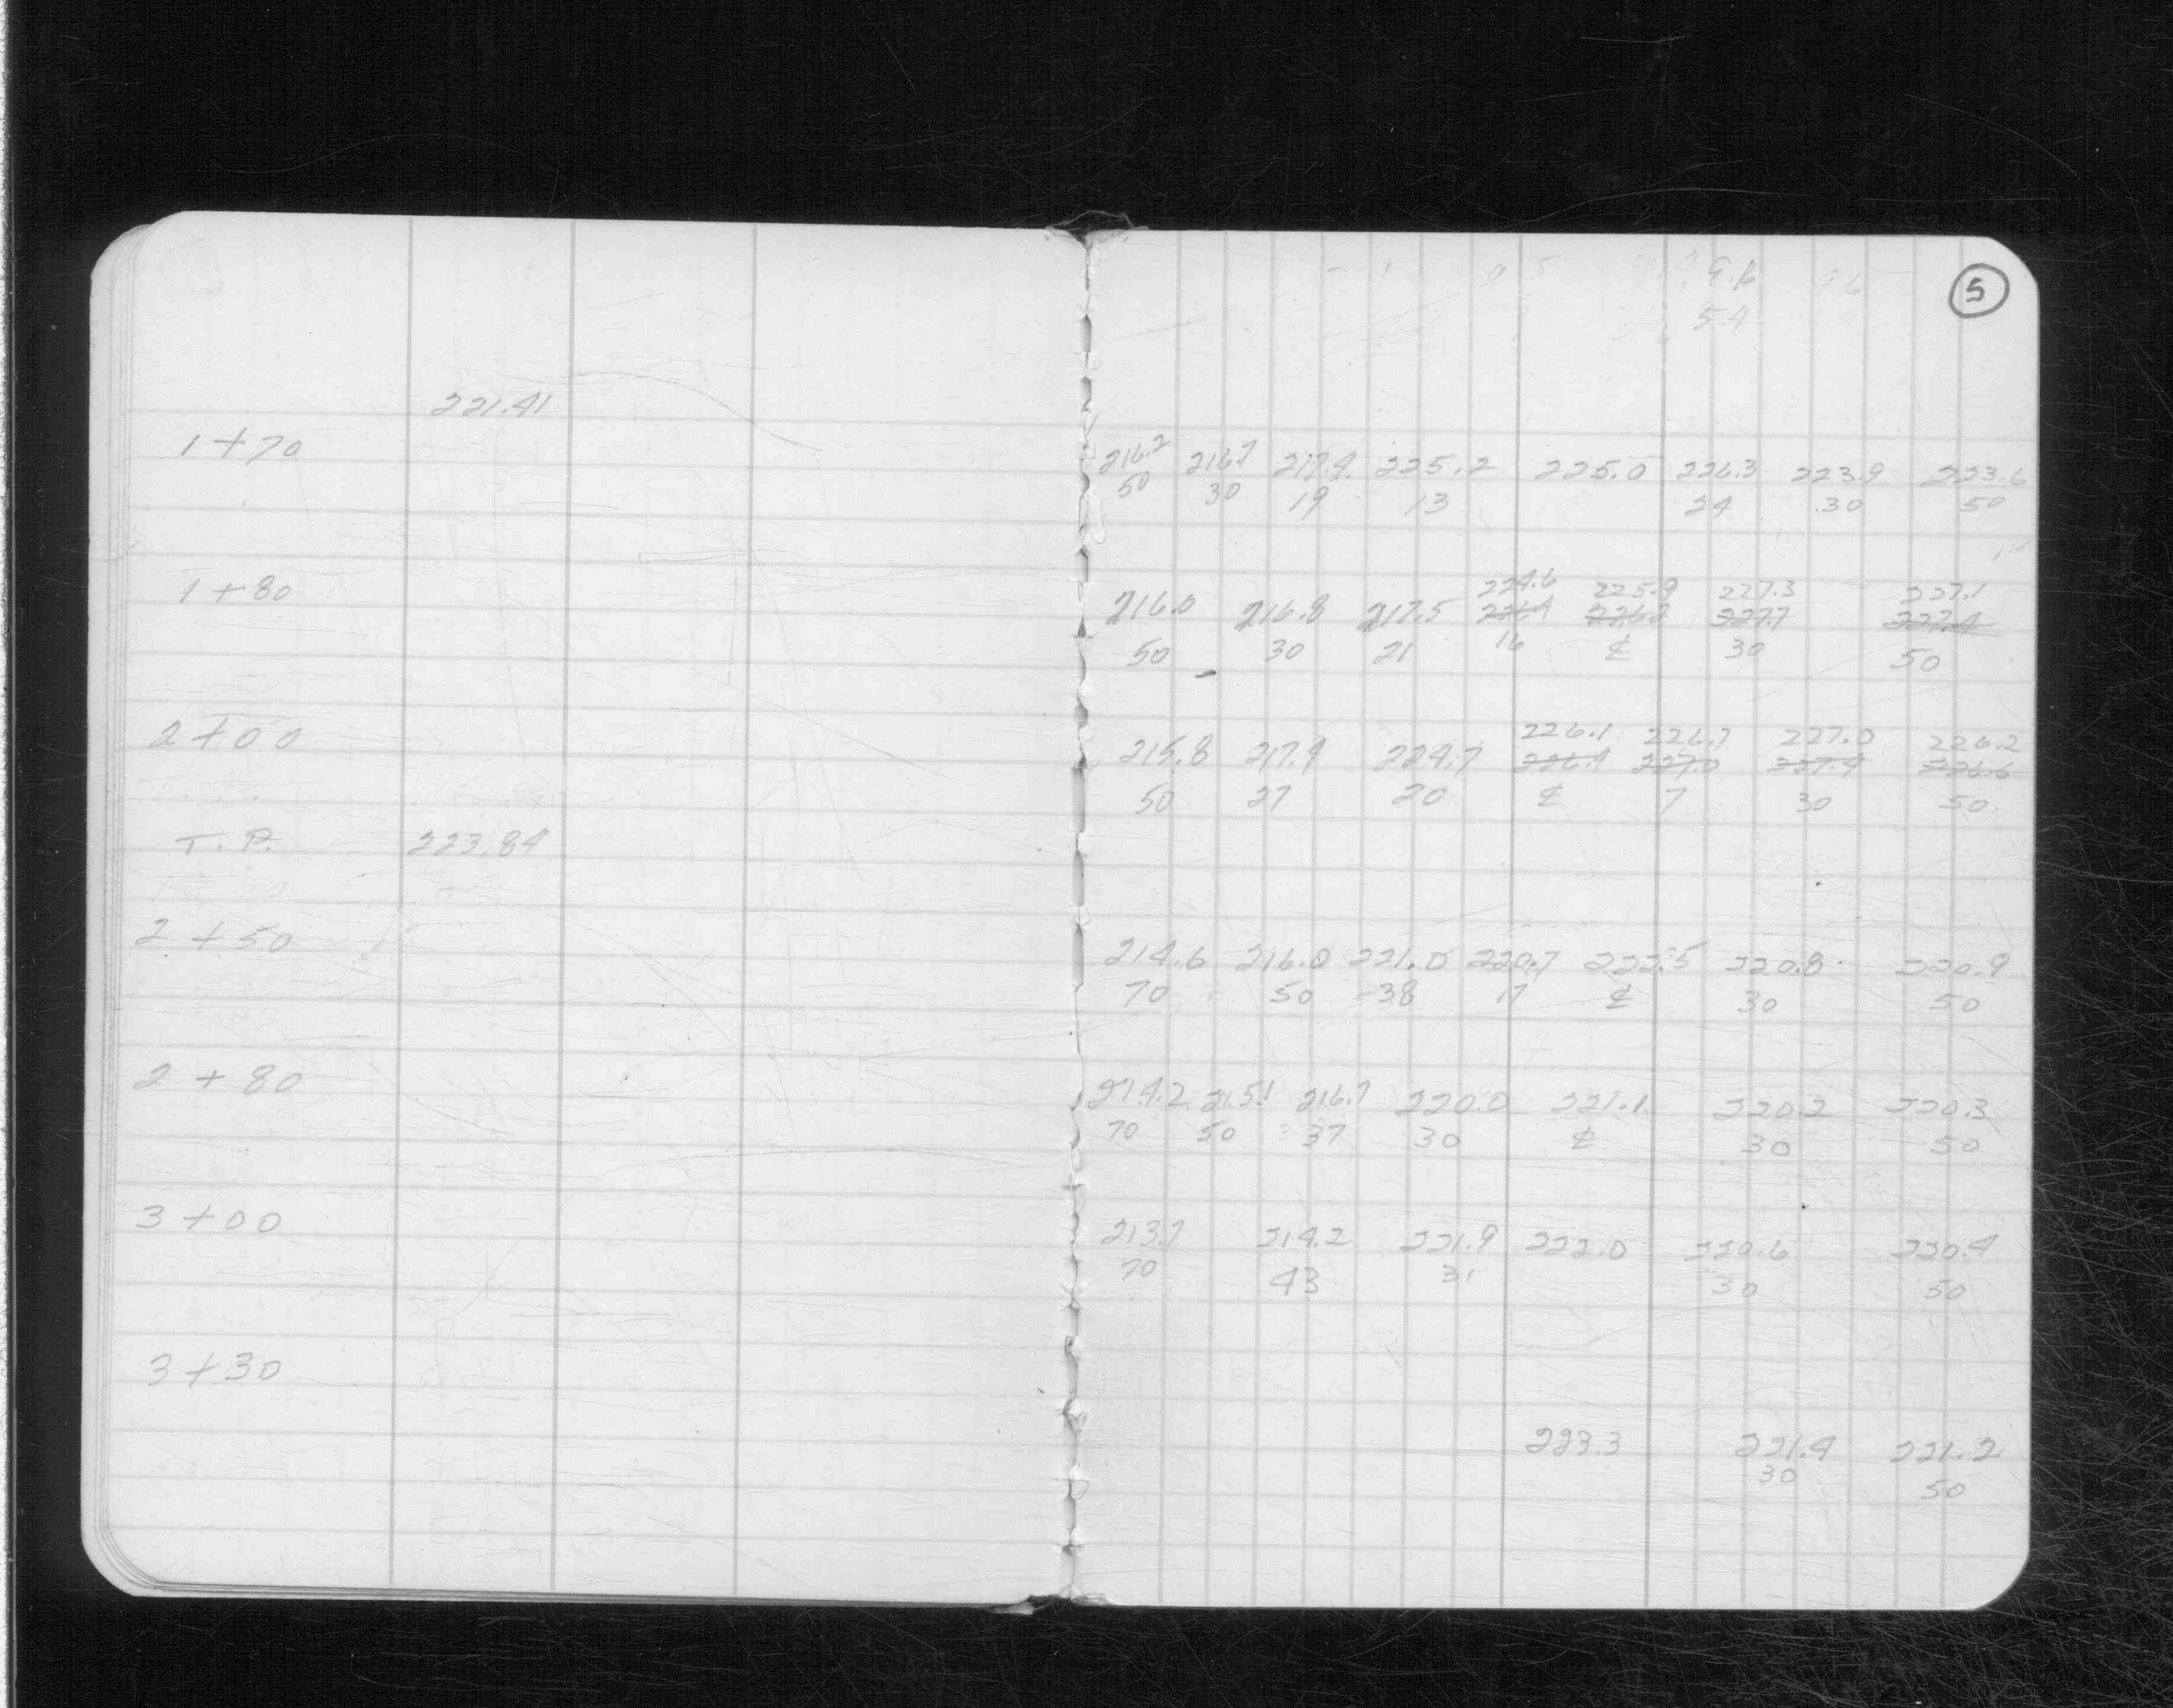 5
5.4
221.41
1+70
216.2 216.7 217.4 225.2 225.0 226.3 223.9 223.6
50 30 19 13 24 30 50
1+80
224.6 225.9 227.3 227.1
216.0 216.8 217.5 226.4 226.2 227.7 227.4
50 30 21 16 ℄ 30 50
2+00
226.1 226.7 227.0 226.2
215.8 217.4 224.7 226.4 227.0 227.4 226.6
50 27 20 ℄ 7 30 50
T.P. 223.84
2+50
214.6 216.0 221.0 220.7 222.5 220.8 220.9
70 50 38 17 ℄ 30 50
2+80
214.2 215.1 216.7 220.0 221.1 220.2 220.3
70 50 37 30 ℄ 30 50
3+00
213.7 214.2 221.9 222.0 220.6 220.4
70 43 31 30 50
3+30
223.3 221.4 221.2
30 50